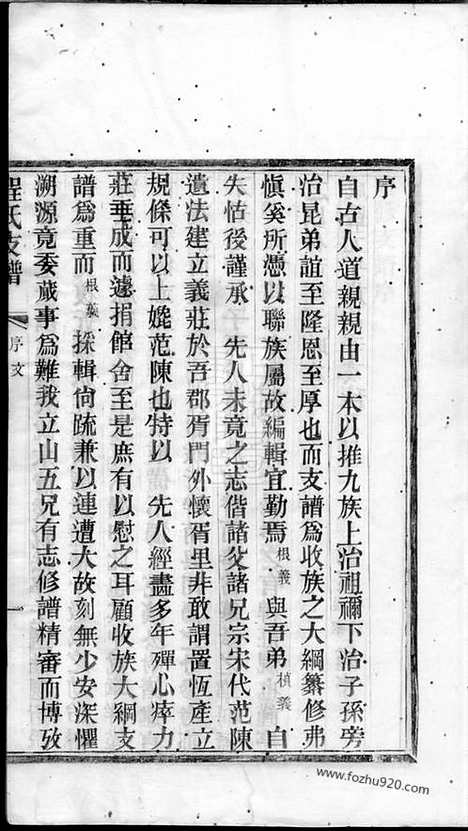 序
自古人道親親由一本以推九族上治祖禰下治子孫旁
治昆弟誼至隆恩至厚也而支譜為收族之大綱纂修弗
慎奚所憑以聯族屬故編輯宜勤焉根義與吾弟楨義自
失怙後謹承 先人未竟之志偕諸父諸兄宗宋代范陳
遺法建立義莊於吾郡胥門外懷胥里非敢謂置恆產立
規條可以上媲范陳也特以 先人經畫多年殫心瘁力
莊垂成而遽捐館舍至是庶有以慰之耳顧收族大綱支
譜為重而根義採輯尙疏兼以連遭大故刻無少安深懼
溯源竟委蕆事為難我立山五兄有志修譜精審而博攷
程氏支譜 序文 一
www.fozhu920.com